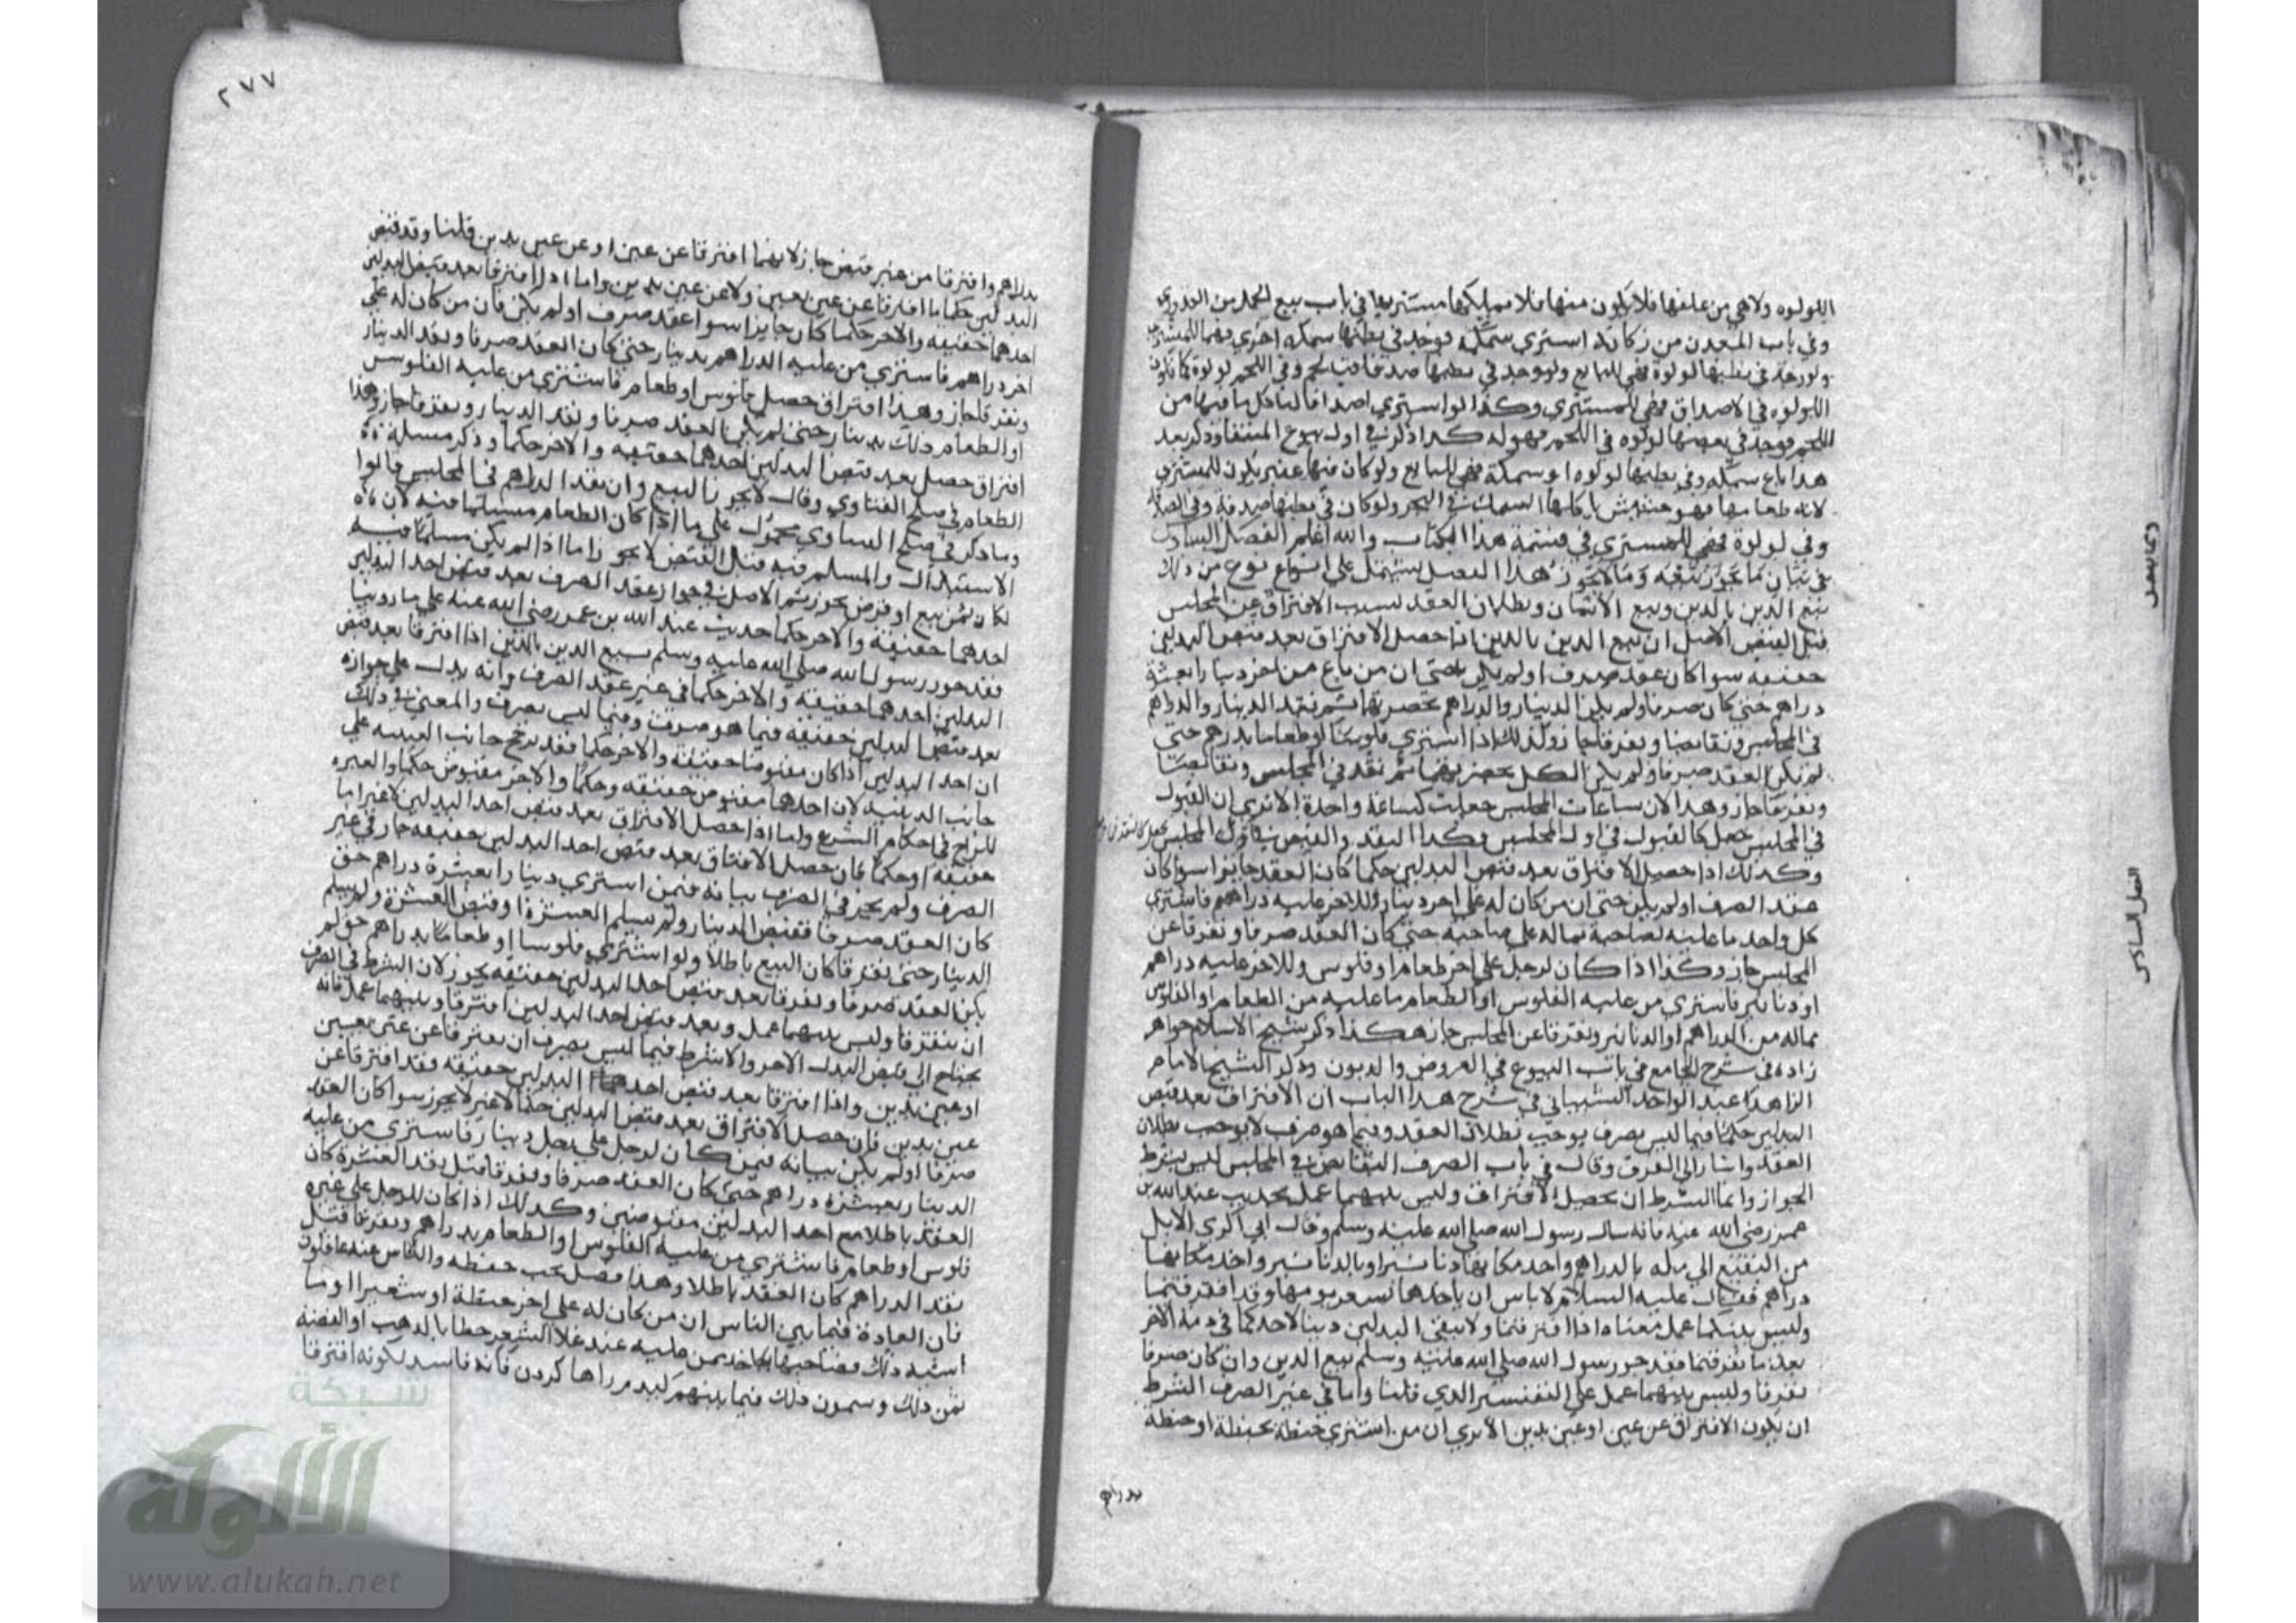 اللولوه ولاهي من علفها فلا يكون منها فلا مملكها مستتريها في باب بيع
وفي باب المعدن من زكاته استري سمكة فوجد في بطنها سمكة اخري فهما للمشتري
ولو وجد في بطنها لولوة فهي للبايع ولو وجد في بطنها صدفا فيه لحم وفي اللحم لولوة
اللولوه في الاصداف فهي للمستري وكذا لو استري اصدافا لياكل ما فيها من
اللحم فوجد في بعضها لولوه في اللحم فهو له كذا ذكر في اول بيوع المنتقا وذكر بعد
هذا باع سمكة وفي بطنها لولوه او سمكة فهي للبايع ولو كان فيها عنبر يكون للمستري
لانه طعامها فهو حشيش ياكلها السمك في البحر ولو كان في بطنها صدفة وفي
وفي لولوة فهي للمستري في تتمة هذا الكتاب والله اعلم الفصل السادس
في بيان ما يجوز بيعه وما لا يجوز هذا الفصل يشتمل على انواع نوع من ذلك
بيع الدين بالدين وبيع الاثمان وبطلان العقد بسبب الافتراق عن المجلس
قبل القبض الاصل ان بيع الدين بالدين اذا حصل الافتراق بعد قبض البدلين
حقيقه سوا كان عقد صرف او لم يكن حتى ان من باع من اخر دينارا بعشرة
دراهم حتى كان صرفا ولم يكن الدينار والدراهم بحضرتهما ثم نقد الدينار والدراهم
في المجلس وتقابضا وتفرقا جاز وكذلك اذا اشتري فلوسا او طعاما بدرهم حتى
لم يكن العقد صرفا ولم يكن الكل بحضرتهما ثم نقد في المجلس وتقابضا
وتفرقا جاز وهذا لان ساعات المجلس جعلت كساعة واحدة الا تري ان القبول
في المجلس جعل كالقبول في اول المجلس فكذا النقد والقبض في المجلس
وكذلك اذا حصل الافتراق بعد قبض البدلين حكما كان العقد جايزا سوا كان
عقد الصرف او لم يكن حتى ان من كان له على اخر دينار وللاخر عليه دراهم فاستري
كل واحد ما عليه لصاحبه بماله على صاحبه حتى كان العقد صرفا وتفرقا عن
المجلس جاز وكذا اذا كان لرجل على اخر طعام او فلوس وللاخر عليه دراهم
او دنانير فاستري من عليه الفلوس او الطعام ما عليه من الطعام او الفلوس
بماله من الدراهم او الدنانير وتفرقا عن المجلس جاز هكذا ذكر شيخ الاسلام خواهر
زاده في شرح الجامع في باب البيوع في العروض والديون وذكر الشيخ الامام
الزاهد عبد الواحد الشيباني في شرح هذا الباب ان الافتراق بعد قبض
البدلين حكما فيما ليس بصرف يوجب بطلان العقد وفيما هو صرف لا يوجب بطلان
العقد واشار الى الفرق وقال في باب الصرف التقابض في المجلس ليس بشرط
الجواز وانما الشرط ان يحصل الافتراق وليس بينهما عمل بحديث عبد الله بن
عمر رضي الله عنه فانه سال رسول الله صلى الله عليه وسلم وقال اني اكري الابل
من البقيع الى مكه بالدراهم واخذ مكانها دنانير او بالدنانير واخذ مكانها
دراهم فقال عليه السلام لا باس ان ياخذها بسعر يومها وقد افترقتما
وليس بينكما عمل معناه اذا افترقتما ولا يبقى البدلين دينا لاحدكما في ذمة الاخر
بعد ما تفرقتما فقد جوز رسول الله صلى الله عليه وسلم بيع الدين وان كان صرفا
تفرقا وليس بينهما عمل على التفسير الذي قلنا واما في غير الصرف الشرط
ان يكون الافتراق عن عين او عين بدين الا تري ان من اشتري حنطة بحنطة او حنطة
بدراهم
الفصل السادس
٢٧٧
بدراهم وافترقا من غير قبض جاز لانهما افترقا عن عين او عن عين بدين قلنا وقد قبض
البدلين حكما ما افترقا عن عين بعين ولا عن عين بدين واما اذا افترقا بعد قبض البدلين
احدهما حقيقه والاخر حكما كان جايزا سوا عقد صرف او لم يكن فان من كان له على
اخر دراهم فاستري من عليه الدراهم بدينار حتى كان العقد صرفا ونقد الدينار
وتفرقا جاز وهذا افتراق حصل فلوس او طعام فاشتري من عليه الفلوس
او الطعام ذلك بدينار حتى لم يكن العقد صرفا ونقد الدينار وتفرقا جاز وهذا
افتراق حصل بعد قبض البدلين احدهما حقيقه والاخر حكما وذكر مسلة
الطعام في صلح الفتاوي وقال لا يجوز البيع وان نقد الدراهم في المجلس قالوا
وما ذكر في صلح الفتاوي محمول على ما اذا كان الطعام مسلما فيه لان
الاستبدال والمسلم فيه قبل القبض لا يجوز اما اذا لم يكن مسلما فيه
لكان ثمن بيع او قرض يجوز ثم الاصل في جواز عقد الصرف بعد قبض احد البدلين
احدهما حقيقة والاخر حكما حديث عبد الله بن عمر رضي الله عنه على ما روينا
فقد جوز رسول الله صلى الله عليه وسلم بيع الدين بالدين اذا افترقا بعد قبض
البدلين احدهما حقيقه والاخر حكما في غير عقد الصرف وانه يدل على جوازه
بعد قبض البدلين حقيقه فيما هو صرف وفيما ليس بصرف والمعنى في ذلك
ان احد البدلين اذا كان مقبوضا حقيقة والاخر حكما فقد ترجح جانب العينيه على
جانب الدينيه لان احدهما مقبوض حقيقه وحكما والاخر مقبوض حكما والعبره
للراجح في احكام الشرع واما اذا حصل الافتراق بعد قبض احد البدلين لا غير اما
حقيقه او حكما فان حصل الافتراق بعد قبض احد البدلين حقيقه جاز في غير
الصرف ولم يجز في الصرف بيانه فيمن استري دينارا بعشرة دراهم حتى
كان العقد صرفا فقبض الدينار ولم يسلم العشرة او قبض العشرة ولم يسلم
الدينار حتى تفرقا كان البيع باطلا ولو اشتري فلوسا او طعاما بدراهم حتى لم
يكن العقد صرفا وتفرقا بعد قبض احد البدلين حقيقه يجوز لان الشرط في الصرف
ان يتفرقا وليس بينهما عمل وبعد قبض احد البدلين افترقا وبينهما عمل فانه
يحتاج الى قبض البدل الاخر والشرط فيما ليس بصرف ان يفترقا عن عين بعين
او عين بدين واذا افترقا بعد قبض احدهما البدلين حقيقه فقد افترقا عن
عين بدين فان حصل الافتراق بعد قبض البدلين حكما لا غير لا يجوز سوا كان العقد
صرفا او لم يكن بيانه فيمن كان لرجل على رجل دينار فاستري من عليه
الدينار بعشرة دراهم حتى كان العقد صرفا وتفرقا قبل نقد العشرة كان
العقد باطلا مع احد البدلين مقبوضين وكذلك اذا كان للرجل على غيره
فلوس او طعام فاشتري من عليه الفلوس او الطعام بدراهم وتفرقا قبل
نقد الدراهم كان العقد باطلا وهذا فصل يجب حفظه والناس عنه غافلون
فان العادة فيما بين الناس ان من كان له على اخر حنطة او شعيرا او ما
اشبه ذلك فصاحبها ياخذ ممن عليه عند غلا السعر خطا بالذهب او الفضة
ثمن ذلك ويسمون ذلك فيما بينهم كندم را بها كردن فانه فاسد لكونه افترقا
شبكة
الألوكة
www.alukah.net